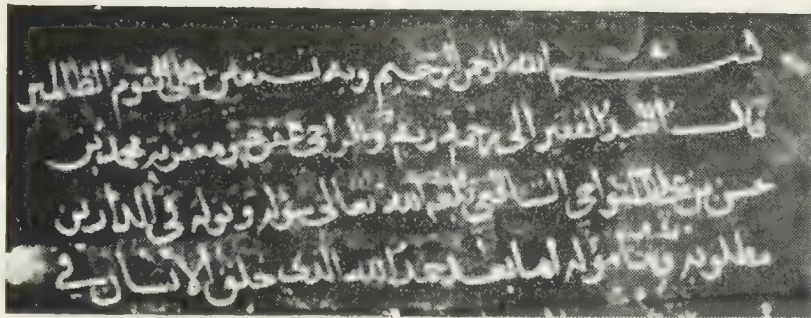 بسم الله الرحمن الرحيم وبه نستعين على القوم الظالمين
قال العبد الفقير الى رحمة ربه والراجي عفوه ومغفرته محمد بن
حسن بن علي النواجي الشافعي الله تعالى سؤله ونوله في الدارين
مطلوبه ومأموله اما بعد حمدا لله الذي خلق الانسان في